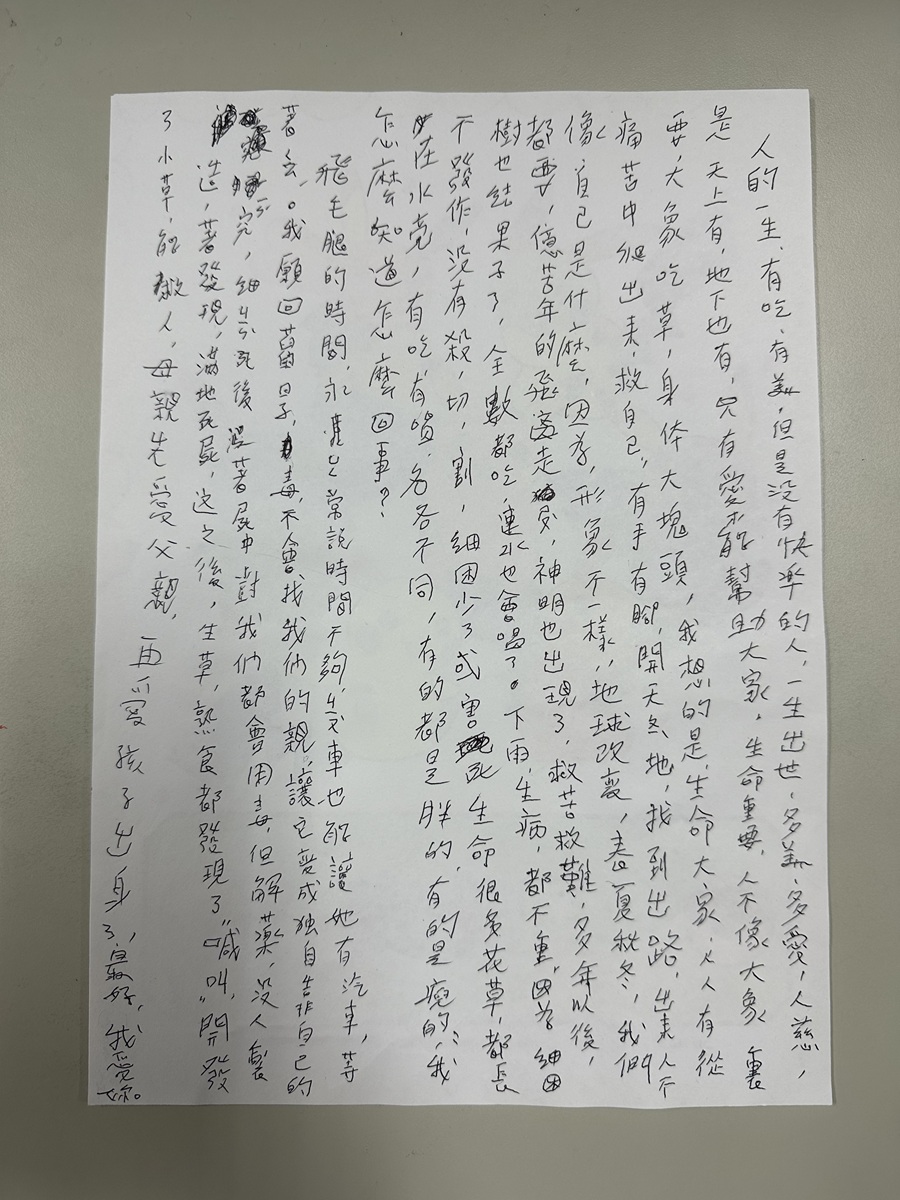 人的一生，有吃，有美，但是没有快樂的人，一生出世，多美，多愛，人慈，
是天上有，地下也有，只有愛才能幫助大家，生命重要，人不像大象裏
要，大象吃草，身体大塊頭，我想的是，生命大家，人人有從
痛苦中爬出来，救自己，有手有腳，開天冬地，找到出路，出来人不
像，自己是什麼，因为，形象不一樣，地球改变，春夏秋冬，我們
都要，億苦年的飛 走 ，神明也出現了，救苦救難，多年以後，
樹也结果子了，全數都吃，連水也會喝了。下雨，生病，都不重"因为细困
不發作，没有殺，切，割，细困少了或害死生命很多花草，都長
在水 ，有吃有 ，各各不同，有的都是胖的，有的是 的，我
怎麼知道怎麼回事？
飛毛腿的時間，永 常說時間不夠，火車也能讓她有汽車，等
著去。我願回 日子，毒，不會找我们的親，讓它变成独自 自己的
究，细 死後没著 中對我们都會用毒，但解藥，没人製
造，著發現，滿地死屍，这之後，生草，熟食都發現了"喊叫，開發
了小草，能救人，母親先爱父親，再爱孩子出身了，最好，我愛你。